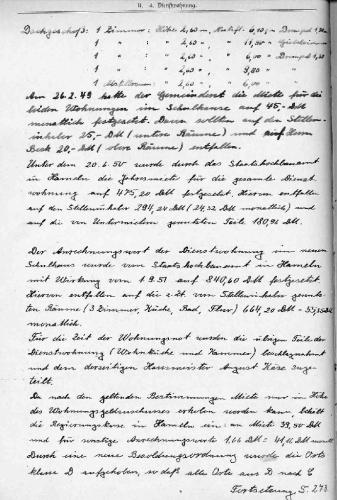 II. 4. Dienstwohnung.
Dachgeschoß: 1 Zimmer: Höhe 2,60 m, Nutzfl. 6,10 qm Drempel 1,30
1 " " 2,60 " " 11,50 " Giebelzimmer
1 " " 2,60 " " 6,00 " Drempel 1,30
1 " " 2,60 " " 9,80 "
1 " 2,60 " " 6,00 "
Am 26.2.49 hatte der Gemeinderat die Miete für die
beiden Wohnungen im Schulhause auf 45,- DM
monatlich festgesetzt. Davon sollten auf den Stellen-
inhaber 25,- DM (untere Räume) und auf Herrn
Beck 20,- DM (obere Räume) entfallen.
Unter dem 20.6.50 wurde durch das Staatshochbauamt
in Hameln die Jahresmiete für die gesamte Dienst-
wohnung auf 475,20 DM festgesetzt. Hiervon entfallen
auf den Stelleninhaber 294,24 DM (24,52 DM monatlich) und
auf die von Untermietern genutzten Teile 180,96 DM.
Der Anrechnungswert der Dienstwohnung im neuen
Schulhaus wurde vom Staatshochbauamt in Hameln
mit Wirkung vom 1.9.51 auf 840,60 DM festgesetzt.
Hiervon entfallen auf die z. Zt. vom Stelleninhaber genutz-
ten Räume (3 Zimmer, Küche, Bad, Flur) 664,20 DM = 55,35 DM
monatlich.
Für die Zeit der Wohnungsnot wurden die übrigen Teile der
Dienstwohnung (Wohnküche und Kammer) beschlagnahmt
und dem derzeitigen Hausmeister August Käse zuge-
teilt.
Da nach den geltenden Bestimmungen Miete nur in Höhe
des Wohnungsgeldzuschusses erhoben werden kann, behält
die Regierungskasse in Hameln ein: an Miete 39,50 DM
und für sonstige Anrechnungswerte 1,66 DM = 41,16 DM monatl.
Durch eine neue Besoldungsordnung wurde die Orts-
klasse D aufgehoben, so daß alle Orte aus D nach C
Fortsetzung S. 273